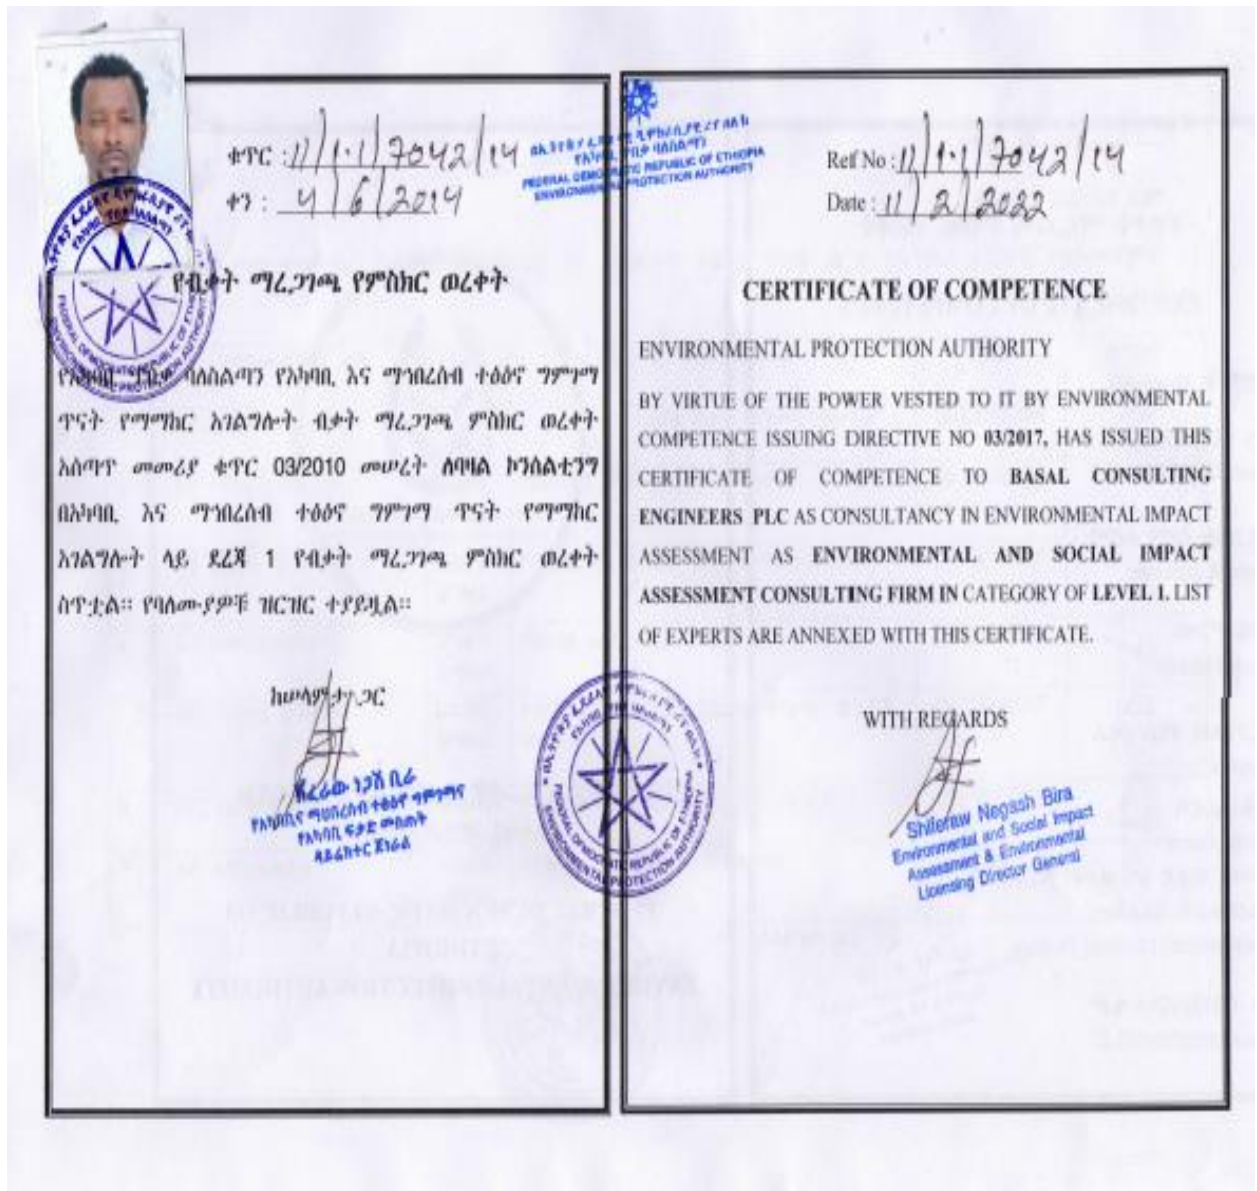 ቁጥር : 11/1.1/7042/14
ቀን : 4/6/2014
የብቃት ማረጋገጫ የምስክር ወረቀት
ባለስልጣን የአካባቢ እና ማኅበረሰብ ተፅዕኖ ግምገማ
ጥናት የማማከር አገልግሎት ብቃት ማረጋገጫ ምስክር ወረቀት
አሰጣጥ መመሪያ ቁጥር 03/2010 መሠረት ለባሳል ኮንሰልቲንግ
በአካባቢ እና ማኅበረሰብ ተፅዕኖ ግምገማ ጥናት የማማከር
አገልግሎት ላይ ደረጃ 1 የብቃት ማረጋገጫ ምስክር ወረቀት
ሰጥቷል። የባለሙያዎቹ ዝርዝር ተያይዟል።
ከሠላምታ ጋር
ሽፈራው ነጋሽ ቢራ
የአካባቢና ማህበረሰብ ተፅዕኖ ግምገማና
የአካባቢ ፍቃድ መስጠት
ዳይሬክተር ጀነራል
FEDERAL DEMOCRATIC REPUBLIC OF ETHIOPIA
ENVIRONMENTAL PROTECTION AUTHORITY
Ref No : 11/1.1/7042/14
Date : 11/2/2022
CERTIFICATE OF COMPETENCE
ENVIRONMENTAL PROTECTION AUTHORITY
BY VIRTUE OF THE POWER VESTED TO IT BY ENVIRONMENTAL
COMPETENCE ISSUING DIRECTIVE NO 03/2017, HAS ISSUED THIS
CERTIFICATE OF COMPETENCE TO BASAL CONSULTING
ENGINEERS PLC AS CONSULTANCY IN ENVIRONMENTAL IMPACT
ASSESSMENT AS ENVIRONMENTAL AND SOCIAL IMPACT
ASSESSMENT CONSULTING FIRM IN CATEGORY OF LEVEL 1. LIST
OF EXPERTS ARE ANNEXED WITH THIS CERTIFICATE.
WITH REGARDS
Shiferaw Negash Bira
Environmental and Social Impact
Assessment & Environmental
Licensing Director General
FEDERAL DEMOCRATIC REPUBLIC OF ETHIOPIA
ENVIRONMENTAL PROTECTION AUTHORITY